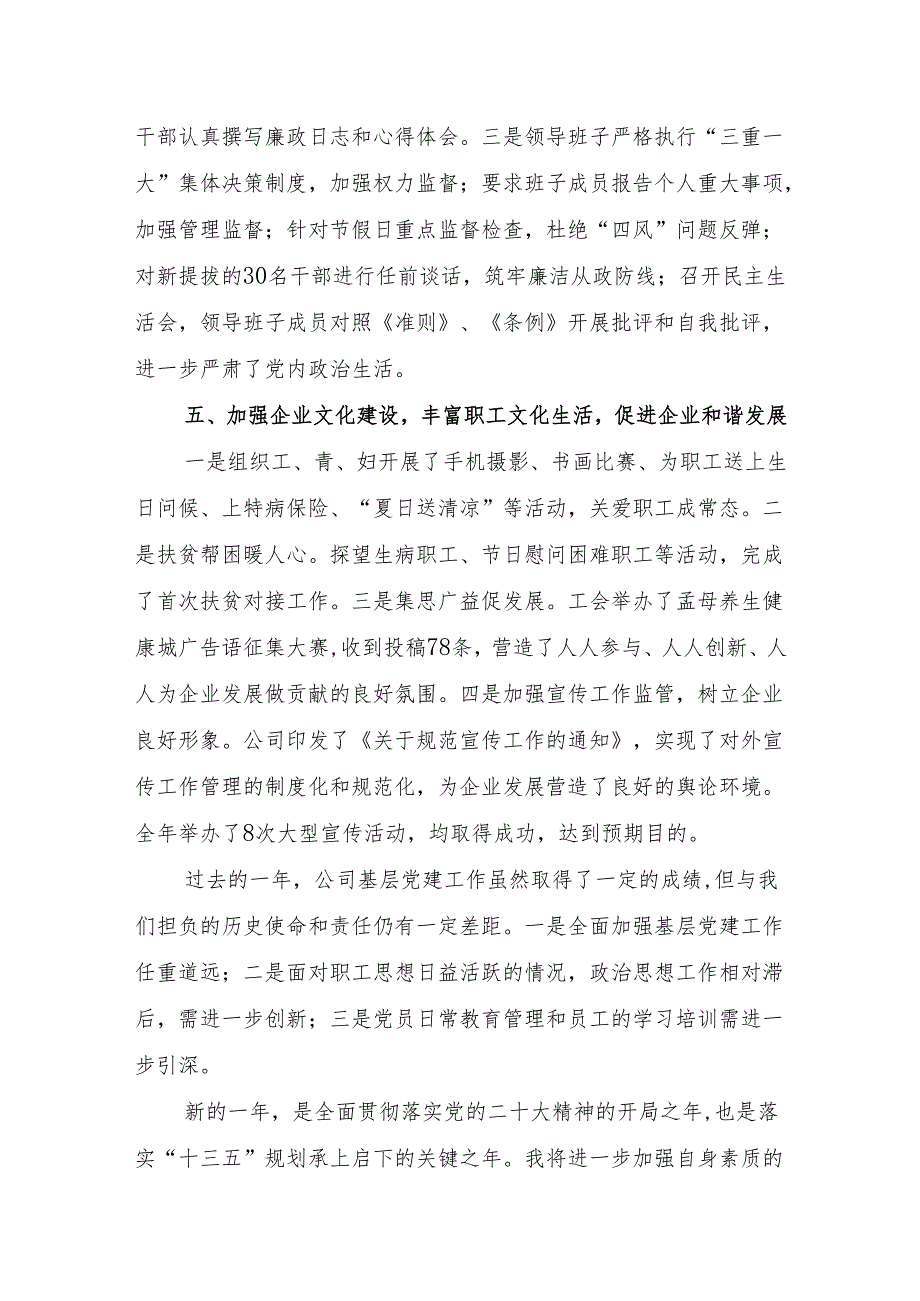 干部认真撰写廉政日志和心得体会。三是领导班子严格执行“三重一
大”集体决策制度，加强权力监督；要求班子成员报告个人重大事项，
加强管理监督；针对节假日重点监督检查，杜绝“四风”问题反弹；
对新提拔的30名干部进行任前谈话，筑牢廉洁从政防线；召开民主生
活会，领导班子成员对照《准则》、《条例》开展批评和自我批评，
进一步严肃了党内政治生活。
五、加强企业文化建设，丰富职工文化生活，促进企业和谐发展
一是组织工、青、妇开展了手机摄影、书画比赛、为职工送上生
日问候、上特病保险、“夏日送清凉”等活动，关爱职工成常态。二
是扶贫帮困暖人心。探望生病职工、节日慰问困难职工等活动，完成
了首次扶贫对接工作。三是集思广益促发展。工会举办了孟母养生健
康城广告语征集大赛,收到投稿78条，营造了人人参与、人人创新、人
人为企业发展做贡献的良好氛围。四是加强宣传工作监管，树立企业
良好形象。公司印发了《关于规范宣传工作的通知》，实现了对外宣
传工作管理的制度化和规范化，为企业发展营造了良好的舆论环境。
全年举办了8次大型宣传活动，均取得成功，达到预期目的。
过去的一年，公司基层党建工作虽然取得了一定的成绩,但与我
们担负的历史使命和责任仍有一定差距。一是全面加强基层党建工作
任重道远；二是面对职工思想日益活跃的情况，政治思想工作相对滞
后，需进一步创新；三是党员日常教育管理和员工的学习培训需进一
步引深。
新的一年，是全面贯彻落实党的二十大精神的开局之年,也是落
实“十三五”规划承上启下的关键之年。我将进一步加强自身素质的